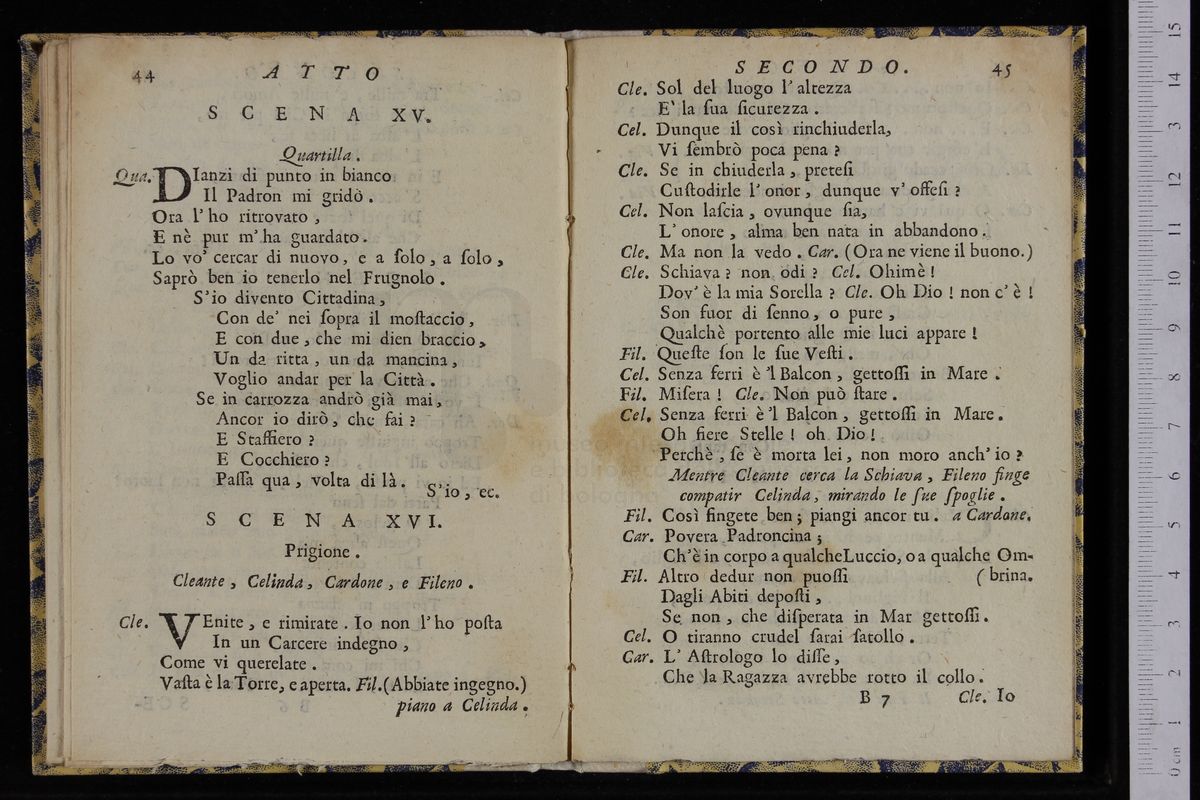 44 ATTO
SCENA XV.
Quartilla.
Qua. DIanzi di punto in bianco
Il Padron mi gridò.
Ora l'ho ritrovato,
E nè pur m'ha guardato.
Lo vo' cercar di nuovo, e a ſolo, a ſolo,
Saprò ben io tenerlo nel Frugnolo.
S'io divento Cittadina,
Con de' nei ſopra il moſtaccio,
E con due, che mi dien braccio,
Un da ritta, un da mancina,
Voglio andar per la Città.
Se in carrozza andrò già mai,
Ancor io dirò, che fai?
E Staffiero?
E Cocchiero?
Paſſa qua, volta di là.
S'io, ec.
SCENA XVI.
Prigione.
Cleante, Celinda, Cardone, e Fileno.
Cle. VEnite, e rimirate. Io non l'ho poſta
In un Carcere indegno,
Come vi querelate.
Vaſta è la Torre, e aperta. Fil. (Abbiate ingegno.)
piano a Celinda.
SECONDO. 45
Cle. Sol del luogo l'altezza
E' la ſua ſicurezza.
Cel. Dunque il così rinchiuderla,
Vi ſembrò poca pena?
Cle. Se in chiuderla, preteſi
Cuſtodirle l'onor, dunque v'offeſi?
Cel. Non laſcia, ovunque ſia,
L'onore, alma ben nata in abbandono.
Cle. Ma non la vedo. Car. (Ora ne viene il buono.)
Cle. Schiava? non odi? Cel. Ohimè!
Dov'è la mia Sorella? Cle. Oh Dio! non c'è!
Son fuor di ſenno, o pure,
Qualchè portento alle mie luci appare!
Fil. Queſte ſon le ſue Veſti.
Cel. Senza ferri è 'l Balcon, gettoſſi in Mare.
Fil. Miſera! Cle. Non può ſtare.
Cel. Senza ferri è 'l Balcon, gettoſſi in Mare.
Oh fiere Stelle! oh Dio!
Perchè, ſe è morta lei, non moro anch'io?
Mentre Cleante cerca la Schiava, Fileno finge
compatir Celinda, mirando le ſue ſpoglie.
Fil. Così fingete ben; piangi ancor tu. a Cardone.
Car. Povera Padroncina;
Ch'è in corpo a qualche Luccio, o a qualche Om-
Fil. Altro dedur non puoſſi (brina.
Dagli Abiti depoſti,
Se non, che diſperata in Mar gettoſſi.
Cel. O tiranno crudel ſarai ſatollo.
Car. L'Aſtrologo lo diſſe,
Che la Ragazza avrebbe rotto il collo.
B 7 Cle. Io
0 cm 1 2 3 4 5 6 7 8 9 10 11 12 13 14 15